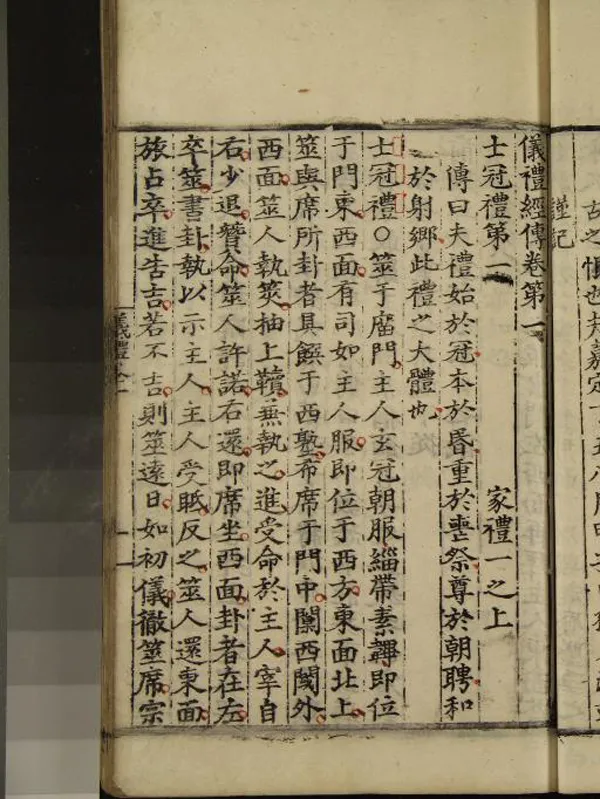 古之懼也
嘉定
謹記
儀禮經傳卷第一
士冠禮第一 家禮一之上
傳曰夫禮始於冠本於昏重於喪祭尊於朝聘和
於射鄉此禮之大體也
士冠禮○筮于廟門主人玄冠朝服緇帶素韠即位
于門東西面有司如主人服即位于西方東面北上
筮與席所卦者具饌于西塾布席于門中闑西閾外
西面筮人執筴抽上韇兼執之進受命於主人宰自
右少退贊命筮人許諾右還即席坐西面卦者在左
卒筮書卦執以示主人主人受眡反之筮人還東面
旅占卒進告吉若不吉則筮遠日如初儀徹筮席宗
儀禮
一